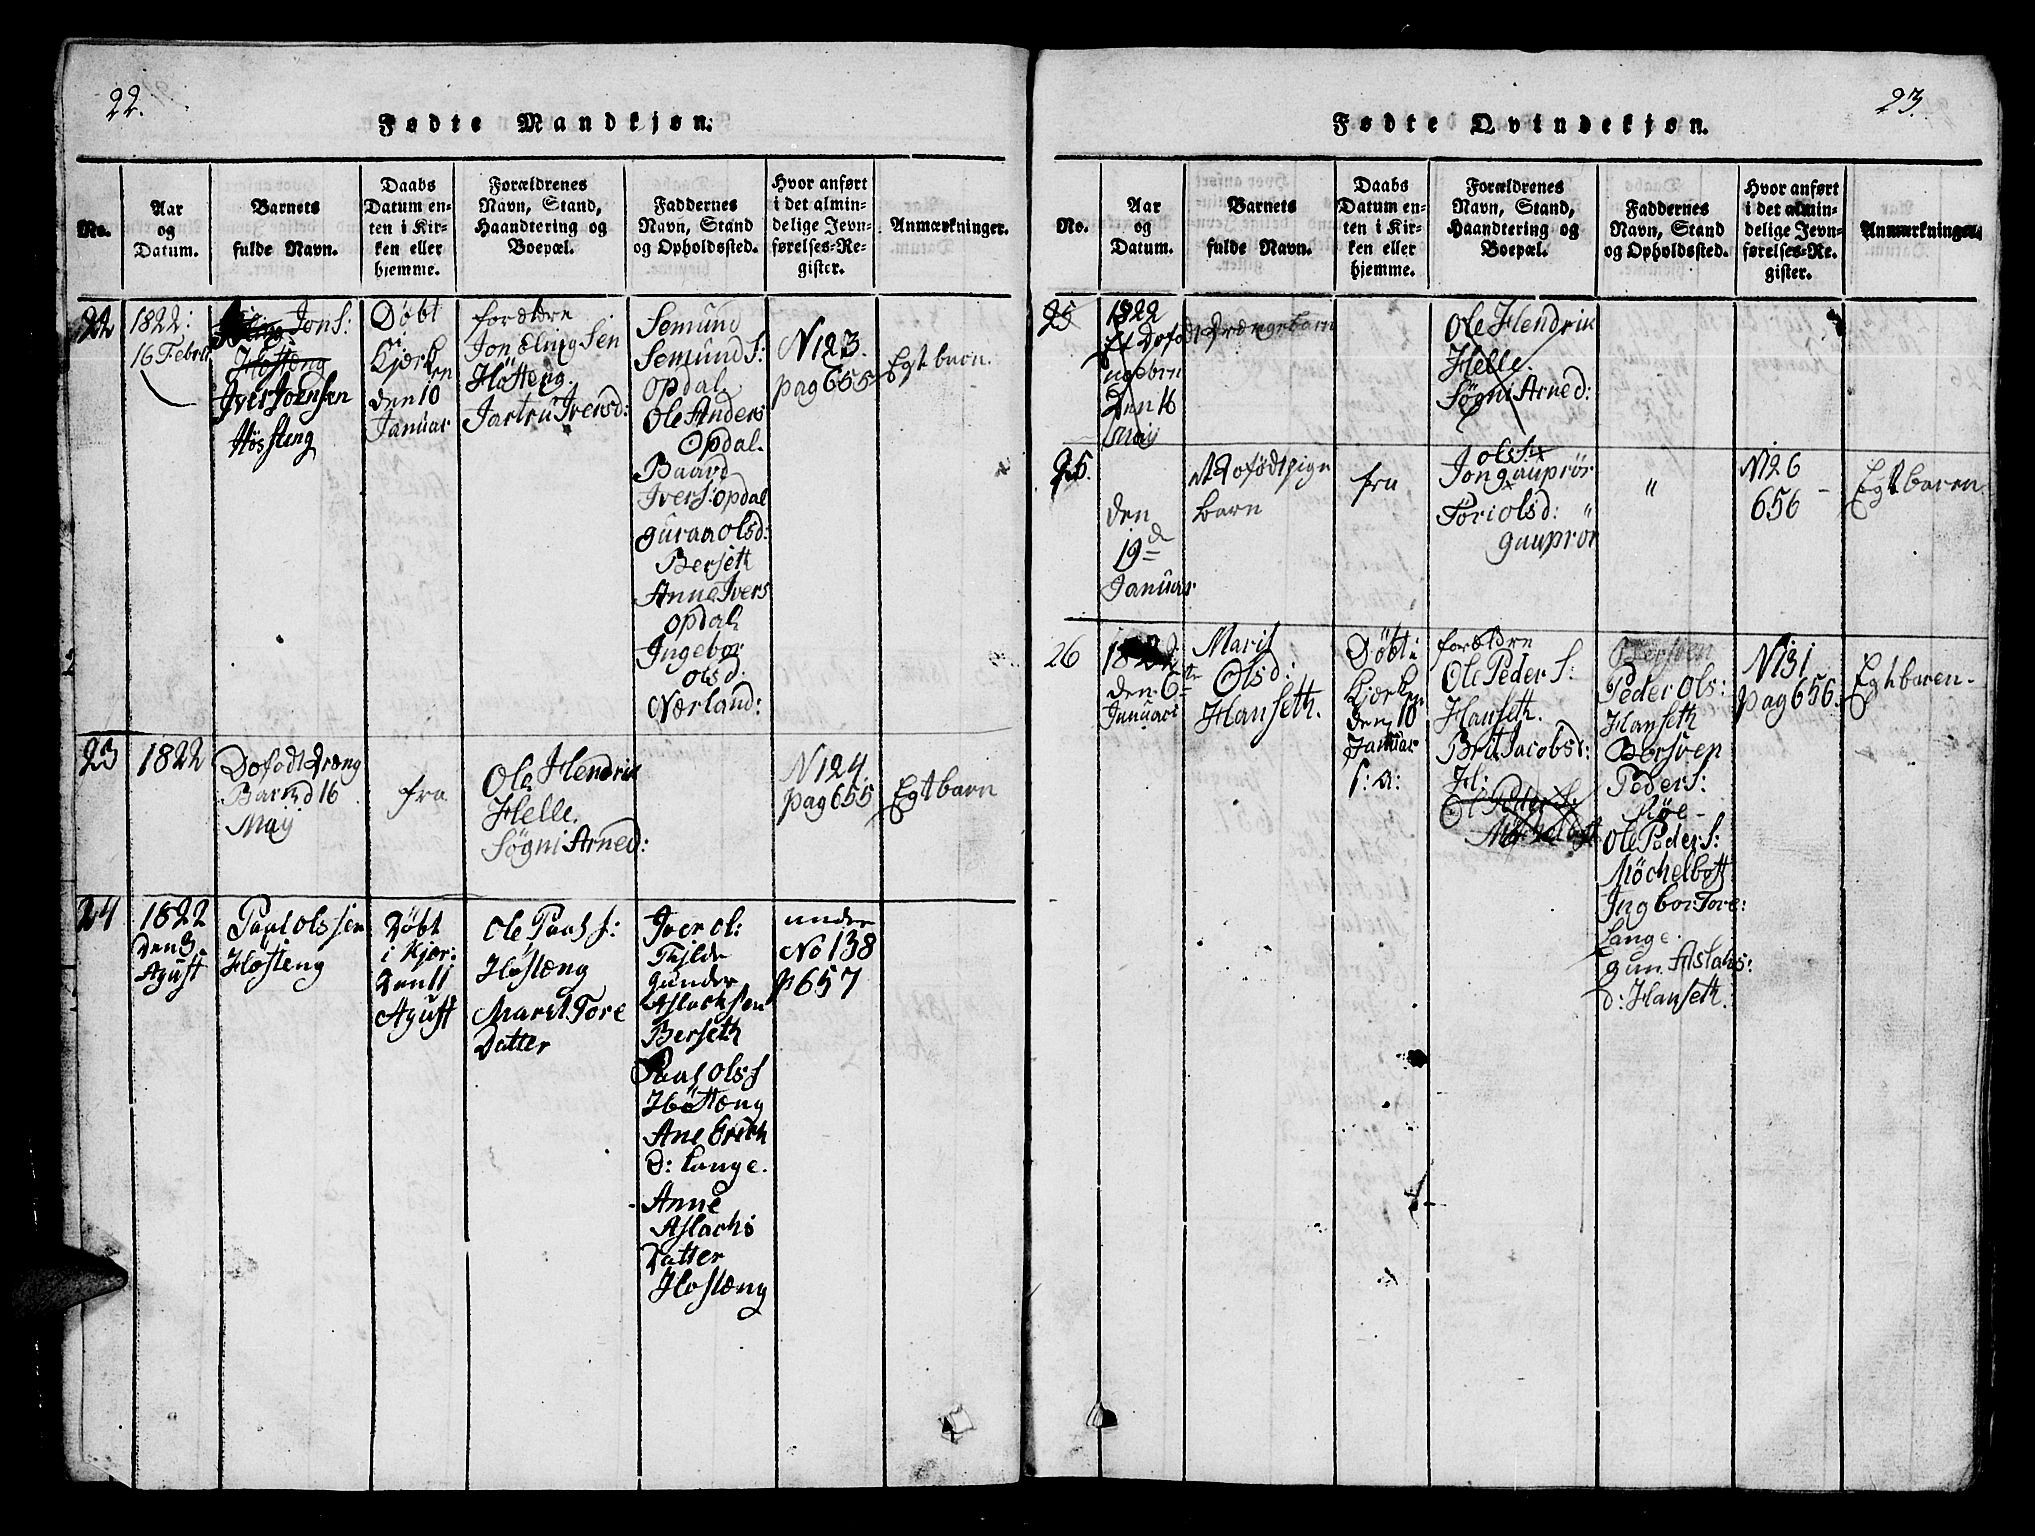 22.
Fødte Mandkjøn.
No.
Aar
og
Datum.
Barnets
fulde Navn.
Daabs
Datum en-
ten i Kir-
ken eller
hjemme.
Forældrenes
Navn, Stand,
Haandtering og
Boepæl.
Faddernes
Navn, Stand
og Opholdssted.
Hvor anført
i det almin-
delige Jevn-
førelses-Re-
gister.
Anmærkninger.
22
1822:
16 Febru
Jons:
Høsteng
Iver Joensen
Høssteng
Døbt
Kjørken
den 10
Januar
forældre
Jon Elingsen
Høsteng.
Jartru Iversd:
Semund
Semunds:
Opdal
Ole Anders
Opdal.
Baard
Ivers: Opdal
guraa Olsd:
Berseth
Anna Ivers
Opdal
Ingebor
Olsd:
Nærland:
N 123.
pag 655
Egt barn.
23
1822
Dofødt Dræng
Barn d 16
Maij
fra
Ole Hendrik
Helle.
Søgni Arned:
N 124
pag 655
Egt barn
24
1822
Den 3
Agust
Paal Olssen
Høsteng
Døbt
i Kjør:
Den 11
Agust
Ole Paals:
Høstæng
Marit Tore
Datter
Iver Ol:
Tjlde
Gunder
Aslachsen
Berseth
Paal Olss
Høstæng
Ane Erich
D: Lange.
Anne
Aslachs
Datter
Høstæng
under
No 138
p 657
23.
Fødte Qvindekjøn.
No.
Aar
og
Datum.
Barnets
fulde Navn.
Daabs
Datum en-
ten i Kir-
ken eller
hjemme.
Forældrenes
Navn, Stand,
Haandtering og
Boepæl.
Faddernes
Navn, Stand
og Opholdssted.
Hvor anført
i det almin-
delige Jevn-
førelses-Re-
gister.
Anmærkninger.
25
1822
Et Dofødt Drængebarn
Den 16
Maij
Ole Hendrik
Helle.
Søgni Arned:
25.
den
19d
Januar
et Dofødt pige
barn
fra
Ols:
Jon gauprør
Tori Olsd: "
gauprør
"
N 126
656
Egt baren
26
den 6te
Januari
Marit
Olsd:
Hanseth.
Døbt i
Kjørken
den 10
Januar
s: a:
forældre
Ole Peders:
Hanseth.
Brit Jacobsd:
H:
Peder Ols:
Hanseth
Bersvep
Peders:
Røe
Ole Peders:
Møchelbost
Ingbor Tore:
Lange.
gun. Aslachs:
d: Hanseth.
N 131
pag 656.
Egt baren